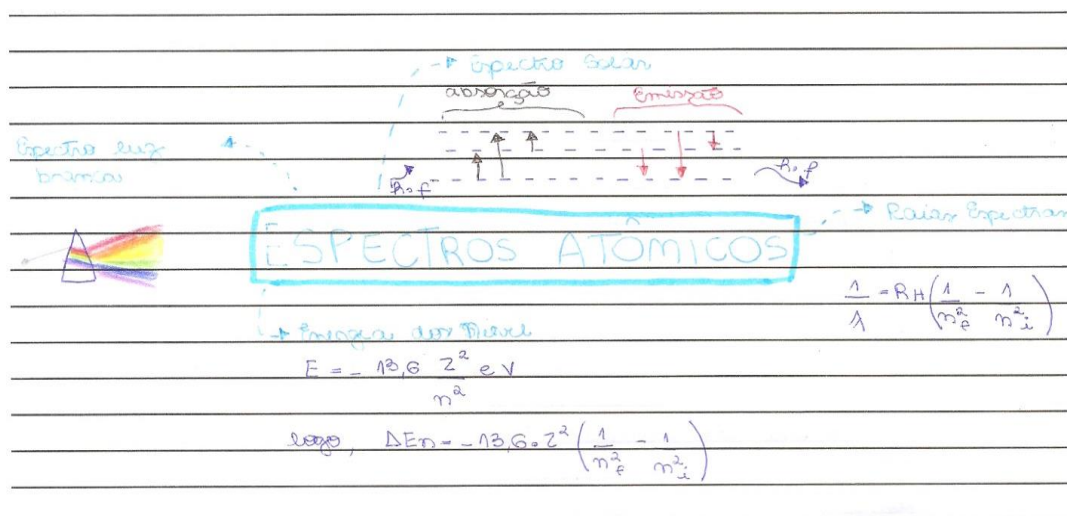 Espectro Solar
absorção
Emissão
Espectro luz
branca
h.f
h.f
ESPECTROS ATÔMICOS
Raias Espectrais
1/λ = RH(1/n²f - 1/n²i)
Energia dos Nível
E = - 13,6 Z²/n² eV
logo, ΔEn = -13,6.Z²(1/n²f - 1/n²i)